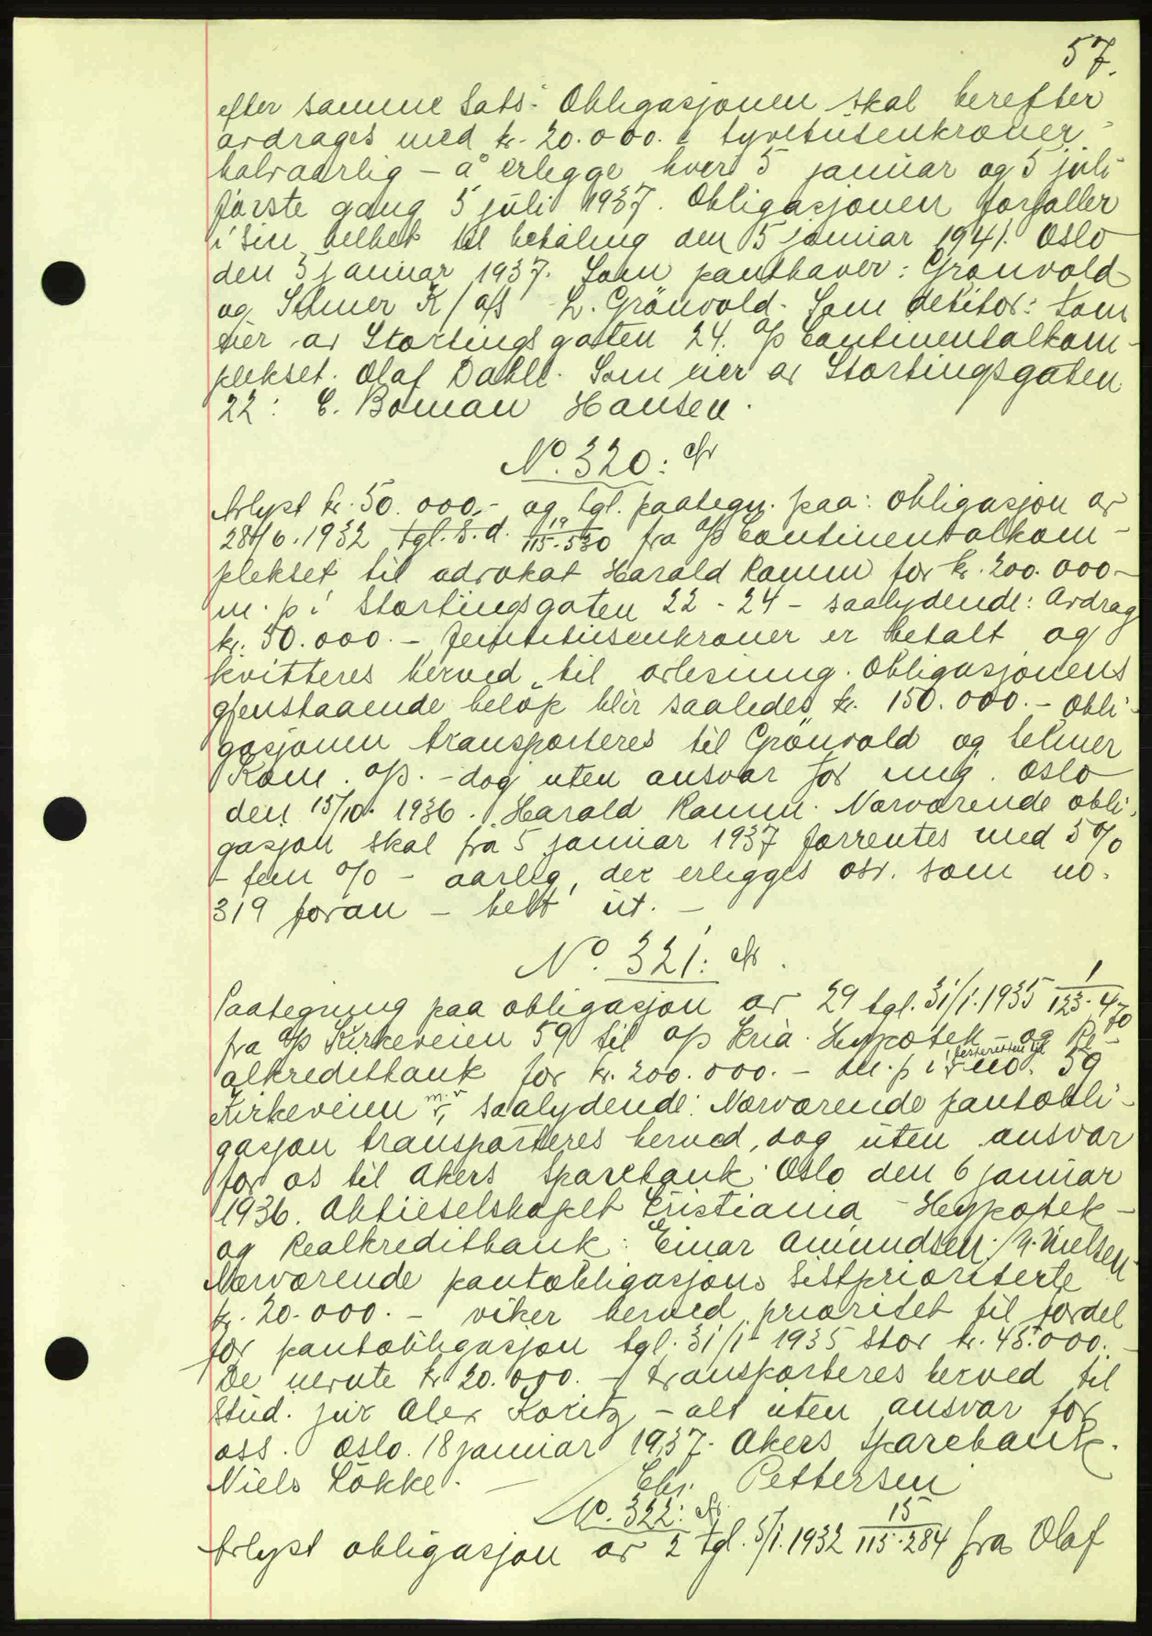 57.
efter samme sats. Obligasjonen skal herefter
avdrages med kr. 20.000. tyvetusenkroner
halvaarlig – å erlegge hver 5 januar og 5 juli
første gang 5 juli 1937. Obligasjonen forfaller
i sin helhet til betaling den 5 januar 1941. Oslo
den 5 januar 1937. Som panthaver: Grönvold
og Selmer K/ a/s L. Grönvold. Som debitor: Som
eier av Stortingsgaten 24. a/s Continentalkom-
plekset. Olaf Dahll. Som eier av Stortingsgaten
22: C. Boman Hansen.
No. 320:
Avlyst kr. 50.000,- og tgl. paategn. paa: obligasjon av
28/6.1932 tgl. s.d. 19/115.530 fra a/s Continentalkom-
plekset til advokat Harald Ramm for kr. 200.000-
m. p i Stortingsgaten 22 - 24 - saalydende: Avdrag
kr. 50.000.- femtitusenkroner er betalt og
kvitteres herved til avlesning. Obligasjonens
gjenstaaende belöp blir saaledes kr. 150.000.- Obli-
gasjonen transporteres til Grönvold og Selmer
Kom. a/s. - dog uten ansvar for mig. Oslo
den 15/10. 1936. Harald Ramm. Nærværende obli-
gasjon skal fra 5 januar 1937 forrentes med 5%
- fem % - aarlig, der erlegges osv. som no.
319 foran - helt ut. -
No. 321:
Paategning paa obligasjon av 29 tgl. 31/1.1935 1/123.470
fra a/s Kirkeveien 59 til a/s Kria. Hypotek- og Re-
alkreditbank for kr. 200.000.- m. p i festeretten til no. 59
Kirkeveien m.v. saalydende: Nærværende pantobli-
gasjon transporteres herved, dog uten ansvar
for os til Akers Sparebank. Oslo den 6 januar
1936. Aktieselskapet Kristiania Hypotek-
og Realkreditbank: Einar Amundsen. / Nielsen
Nærværende pantobligasjons sistprioriterte
kr. 20.000.- viker herved prioritet til fordel
for pantobligasjon tgl. 31/1 1935 stor kr. 45.000.-
De nevnte kr 20.000.- transporteres herved til
stud. jur Alex Koritz - alt uten ansvar for
oss. Oslo. 18 januar 1937. Akers Sparebank.
Niels Lökke. - Chr. Pettersen
No. 322:
Avlyst obligasjon av 2 tgl. 5/1.1932 15/115.284 fra Olaf